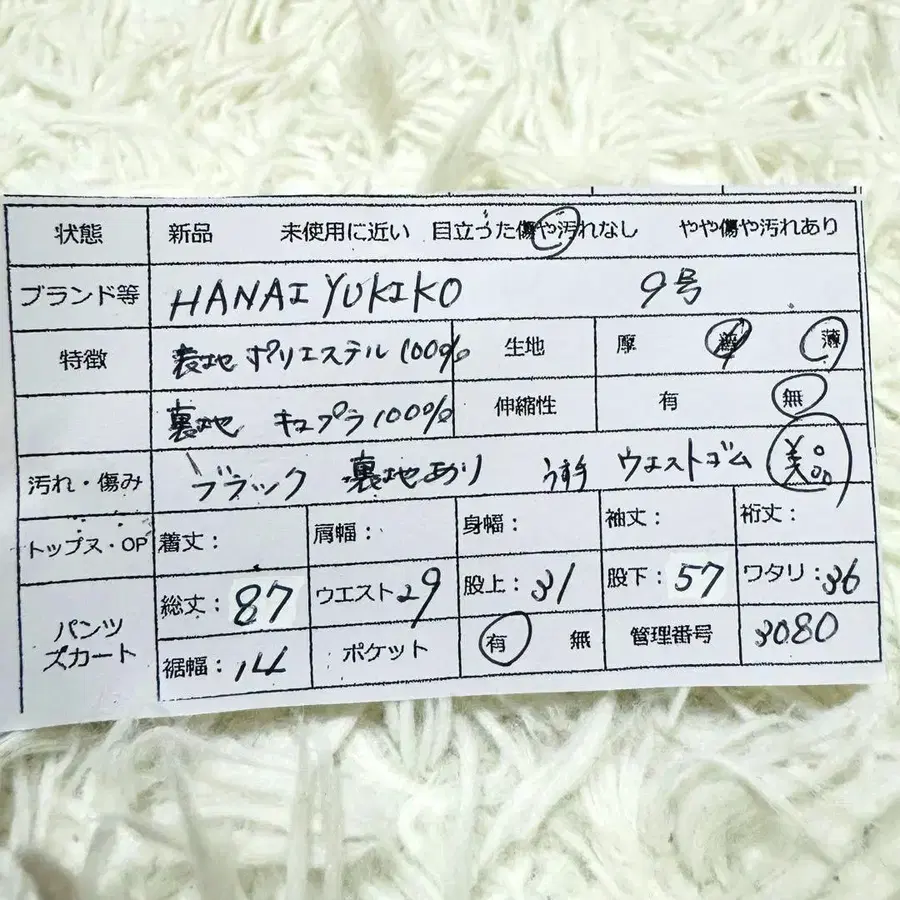 状態 新品 未使用に近い 目立った傷や汚れなし やや傷や汚れあり
ブランド等 HANAI YUKIKO 9号
特徴 表地 ポリエステル 100% 生地 厚 薄
裏地 キュプラ 100% 伸縮性 有 無
汚れ・傷み ブラック 裏地あり うす手 ウエストゴム 美
トップス・OP 着丈: 肩幅: 身幅: 袖丈: 裄丈:
パンツ スカート 総丈: 87 ウエスト 29 股上: 31 股下: 57 ワタリ: 36
裾幅: 14 ポケット 有 無 管理番号 3080